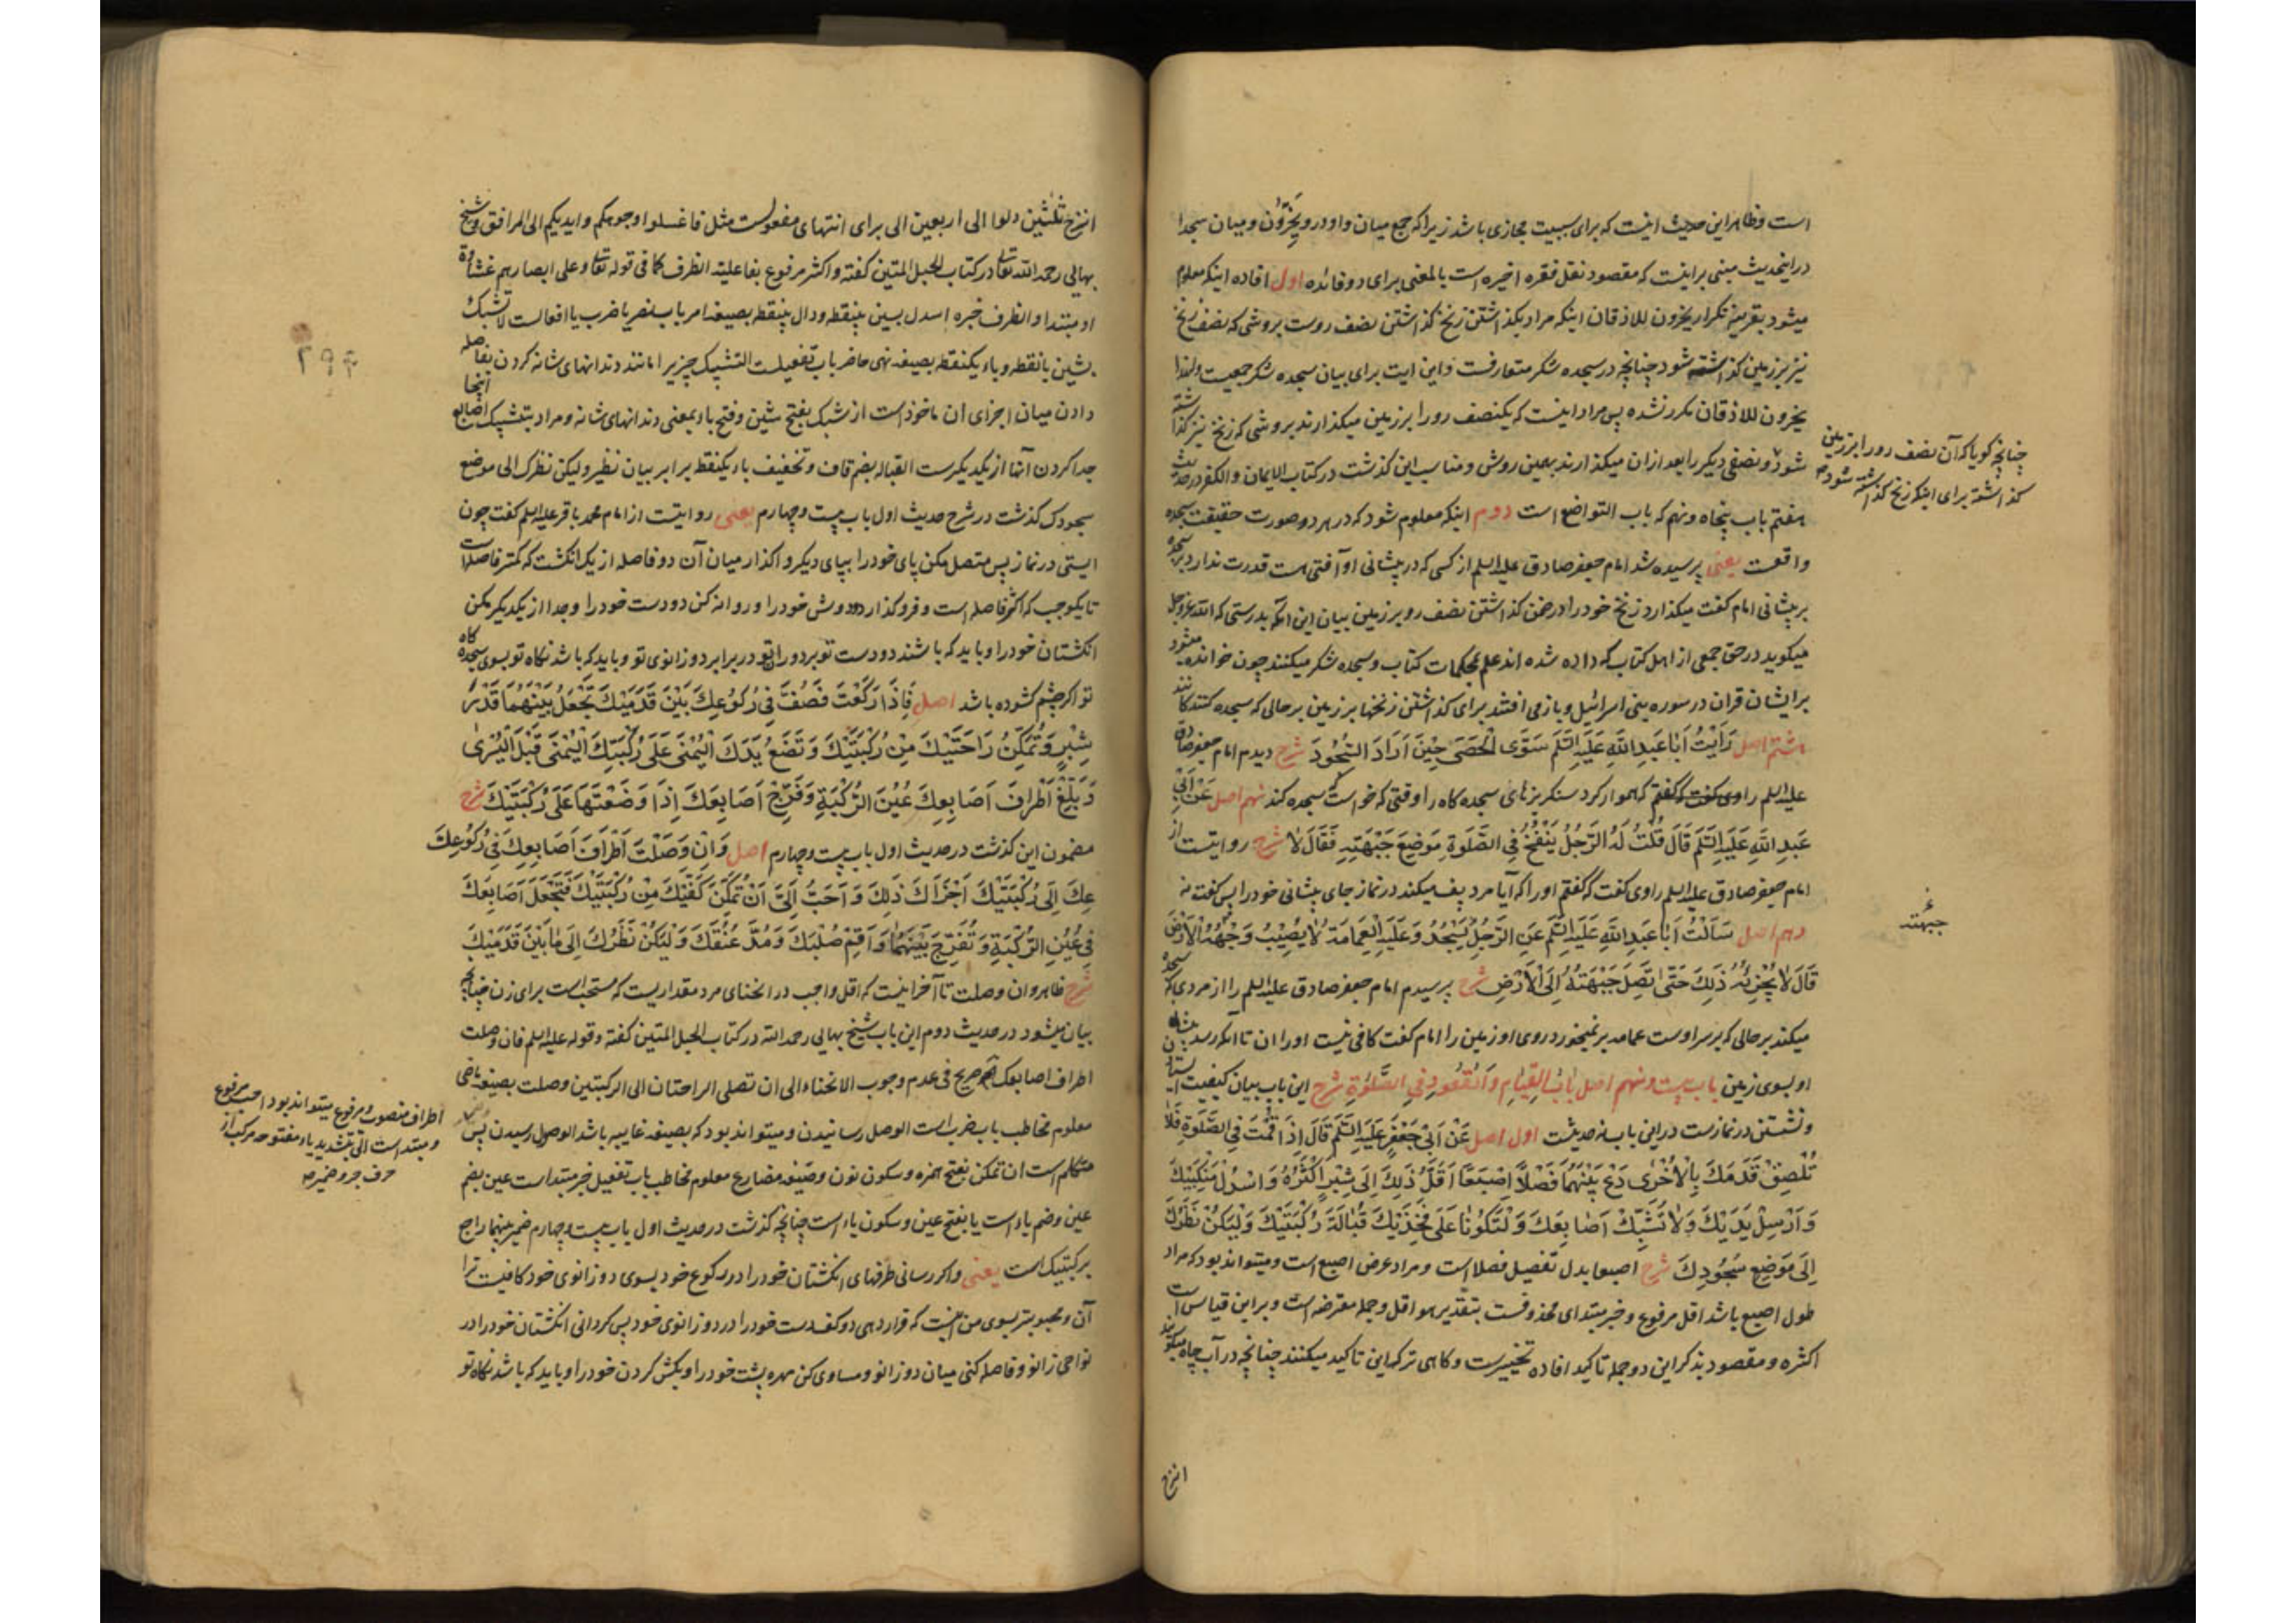 است وظاهر این حدیث اینست که برای سببیت مجازی باشد زیرا که جمع میان واو در ویخرّون و میان سجدا
در اینحدیث مبنی بر اینست که مقصود نقل فقره اخیره است بالمعنی برای دو فائده اول افاده اینکه معلوم
میشود بقرینه تکرار یخرون للاذقان اینکه مراد بکذاشتن زنخ کذاشتن نصف روست بروشی که نصف زنخ
نیز بر زمین کذاشته شود چنانچه در سجده شکر متعارفست و این ایت برای بیان سجده شکر جمعیست ولهذا
یخرون للاذقان مکرر نشده پس مراد اینست که یکنصف رو را بر زمین میکذارند بروشی که زنخ نیز کذاشته
شود و نصفی دیکر را بعد از ان میکذارند بهمین روش و مناسب این کذشت در کتاب الایمان والکفر در حدیث
هفتم باب پنجاه و نهم که باب التواضع است دوم اینکه معلوم شود که در هر دو صورت حقیقت سجده
واقعست یعنی پرسیده شد امام جعفر صادق علیه السلم از کسی که در پیشانی او آفتی هست قدرت ندارد بر سجده
بر پیشانی امام کفت میکذارد زنخ خود را در ضمن کذاشتن نصف رو بر زمین بیان این آنکه بدرستی که الله عز وجل
میکوید در حق جمعی از اهل کتاب که داده شده اند علم بمحکمات کتاب و سجده شکر میکنند چون خوانده میشود
بر ایشان قران در سوره بنی اسرائیل و باز می افتند برای کذاشتن زنخها بر زمین بر حالی که سجده کنندکانند
هشتم اصل رَاَیْتُ اَبا عَبدِ اللهِ عَلَیهِ السَّلَم سَوَّی الْحَصَی حِینَ اَرَادَ السُّجُودَ شرح دیدم امام جعفر صادق
علیه السلم را که هموار کرد سنکریزهای سجده کاه را وقتی که خواست که سجده کند نهم اصل عَنْ اَبِی
عَبدِ اللهِ عَلَیهِ السَّلَم قَالَ قُلْتُ لَهُ الرَّجُلُ یَنْفُخُ فِی الصَّلوةِ مَوضِعَ جَبْهَتِهِ فَقَالَ لَا شرح روایتست از
امام جعفر صادق علیه السلم راوی کفت که کفتم او را که آیا مرد پف میکند در نماز جای پیشانی خود را پس کفت نه
دهم اصل سَاَلْتُ اَبا عَبدِ اللهِ عَلَیهِ السَّلَم عَنِ الرَّجُلِ یَسْجُدُ وَعَلَیهِ الْعِمَامَةُ لَا یُصِیْبُ وَجْهُهُ الْاَرْضَ
قَالَ لَا یُجْزِئُهُ ذَلِکَ حَتَّی تَصِلَ جَبْهَتُهُ اِلَی الْاَرْضِ شرح پرسیدم امام جعفر صادق علیه السلم را از مردی که سجده
میکند بر حالی که بر سر اوست عمامه بر نمیخورد روی او زمین را امام کفت کافی نیست او را ان تا آنکه رسد پیشانی
او بسوی زمین باب بیست و نهم اصل بَابُ الْقِیَامِ وَالْقُعُودِ فِی الصَّلوةِ شرح این باب بیان کیفیت ایستادن
و نشستن در نمازست در این باب نه حدیثست اول اصل عَنْ اَبِی جَعْفَرٍ عَلَیهِ السَّلَم قَالَ اِذَا قُمْتَ فِی الصَّلوةِ فَلَا
تُلْصِقْ قَدَمَکَ بِالْاُخْرَی دَعْ بَیْنَهُمَا فَصْلًا اِصْبَعًا اَقَلُّ ذَلِکَ اِلَی شِبْرٍ اَکْثَرُهُ وَاسْدُلْ مَنْکِبَیْکَ
وَاَرْسِلْ یَدَیْکَ وَلَا تُشَبِّکْ اَصَابِعَکَ وَلْتَکُونَا عَلَی فَخِذَیْکَ قُبَالَةَ رُکْبَتَیْکَ وَلْیَکُنْ نَظَرُکَ
اِلَی مَوْضِعِ سُجُودِکَ شرح اصبعا بدل تفصیل فصلا است و مراد عرض اصبع است و میتواند بود که مراد
طول اصبع باشد اقل مرفوع و خبر مبتدای محذوفست بتقدیر هو اقل و جمله معترضه است و بر این قیاس است
اکثره و مقصود بذکر این دو جمله تاکید افاده تخییرست و کاهی ترک این تاکید میکنند چنانچه در آب چاه میکویند
انزح
چنانچه کویا که آن نصف رو را بر زمین
کذاشته برای اینکه زنخ کذاشته شود
جبهته
انزح ثلثین دلوا الی اربعین الی برای انتهای مفعولست مثل فاغسلوا وجوهکم وایدیکم الی المرافق و شیخ
بهائی رحمه الله تعالی در کتاب الحبل المتین کفته واکثر مرفوع بفاعلیة الظرف کما فی قوله تعالی وعلی ابصارهم غشاوة
او مبتدا والظرف خبره اسدل بسین بینقطه ودال بینقطه بصیغه امر باب نصر یا ضرب یا افعالست لا تشبک
بشین بانقطه و باء یکنقطه بصیغه نهی حاضر باب تفعیلست التشبیک چیزیرا مانند دندانهای شانه کردن بفاصله
دادن میان اجزای ان ماخوذ است از شبک بفتح شین وفتح باء بمعنی دندانهای شانه و مراد بتشبیک اصابع اینجا
جدا کردن آنها از یکدیکرست القبالة بضم قاف وتخفیف باء یکنقط برابر بیان نظیر ولیکن نظرک الی موضع
سجودک کذشت در شرح حدیث اول باب بیست وچهارم یعنی روایتست از امام محمد باقر علیه السلم کفت چون
ایستی در نماز پس متصل مکن پای خود را بپای دیکر و اکذار میان آن دو فاصله از یک انکشت که کمتر فاصله است
تا یکوجب که اکثر فاصله است و فرو کذار دودوش خود را و روانه کن دو دست خود را و جدا از یکدیکر مکن
انکشتان خود را و باید که باشند دو دست تو بر دو ران تو در برابر دو زانوی تو و باید که باشد نکاه تو بسوی سجده کاه
تو اکر چشم کشوده باشد اصل فَاِذَا رَکَعْتَ فَصُفَّ فِی رُکُوعِکَ بَیْنَ قَدَمَیْکَ تَجْعَلُ بَیْنَهُمَا قَدْرَ
شِبْرٍ وَتُمَکِّنُ رَاحَتَیْکَ مِنْ رُکْبَتَیْکَ وَتَضَعُ یَدَکَ الْیُمْنَی عَلَی رُکْبَتِکَ الْیُمْنَی قَبْلَ الْیُسْرَی
وَبَلِّغْ اَطْرَافَ اَصَابِعِکَ عَیْنَ الرُّکْبَةِ وَفَرِّجْ اَصَابِعَکَ اِذَا وَضَعْتَهَا عَلَی رُکْبَتَیْکَ شرح
مضمون این کذشت در حدیث اول باب بیست وچهارم اصل وَاِنْ وَصَلَتْ اَطْرَافُ اَصَابِعِکَ فِی رُکُوعِکَ
عِکَ اِلَی رُکْبَتَیْکَ اَجْزَاَکَ ذَلِکَ وَاَحَبُّ اِلَیَّ اَنْ تُمَکِّنَ کَفَّیْکَ مِنْ رُکْبَتَیْکَ فَتَجْعَلَ اَصَابِعَکَ
فِی عَیْنِ الرُّکْبَةِ وَتُفَرِّجَ بَیْنَهُمَا وَاَقِمْ صُلْبَکَ وَمُدَّ عُنُقَکَ وَلْیَکُنْ نَظَرُکَ اِلَی مَا بَیْنَ قَدَمَیْکَ
شرح ظاهر وان وصلت تا آخر اینست که اقل واجب در انحنای مرد مقداریست که مستحب است برای زن چنانچه
بیان میشود در حدیث دوم این باب شیخ بهائی رحمه الله در کتاب الحبل المتین کفته وقوله علیه السلم فان وصلت
اطراف اصابعک صریح فی عدم وجوب الانحناء الی ان تصلی الراحتان الی الرکبتین وصلت بصیغه ماضی
معلوم مخاطب باب ضرب است الوصل رسانیدن و میتواند بود که بصیغه غایبه باشد الوصول رسیدن پس
متکلم است ان تمکن بفتح همزه و سکون نون و صیغه مضارع معلوم مخاطب باب تفعیل خبر مبتداست عین بضم
عین وضم یاء است یا بفتح عین و سکون یاء است چنانچه کذشت در حدیث اول باب بیست وچهارم ضمیر بینهما راجع
برکبتیک است یعنی و اکر رسانی طرفهای انکشتان خود را در رکوع خود بسوی دو زانوی خود کافیست ترا
آن و محبوبتر بسوی من اینست که قرار دهی دو کف دست خود را در دو زانوی خود پس کردانی انکشتان خود را در
نواحی زانو و فاصله کنی میان دو زانو و مساوی کن مهره پشت خود را و بکش کردن خود را و باید که باشد نکاه تو
اطراف منصوب و مرفوع میتواند بود احب مرفوع
و مبتداست الیّ بتشدید یاء مفتوحه مرکب از
حرف جر و ضمیر